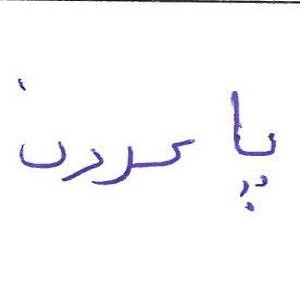 پا کردن